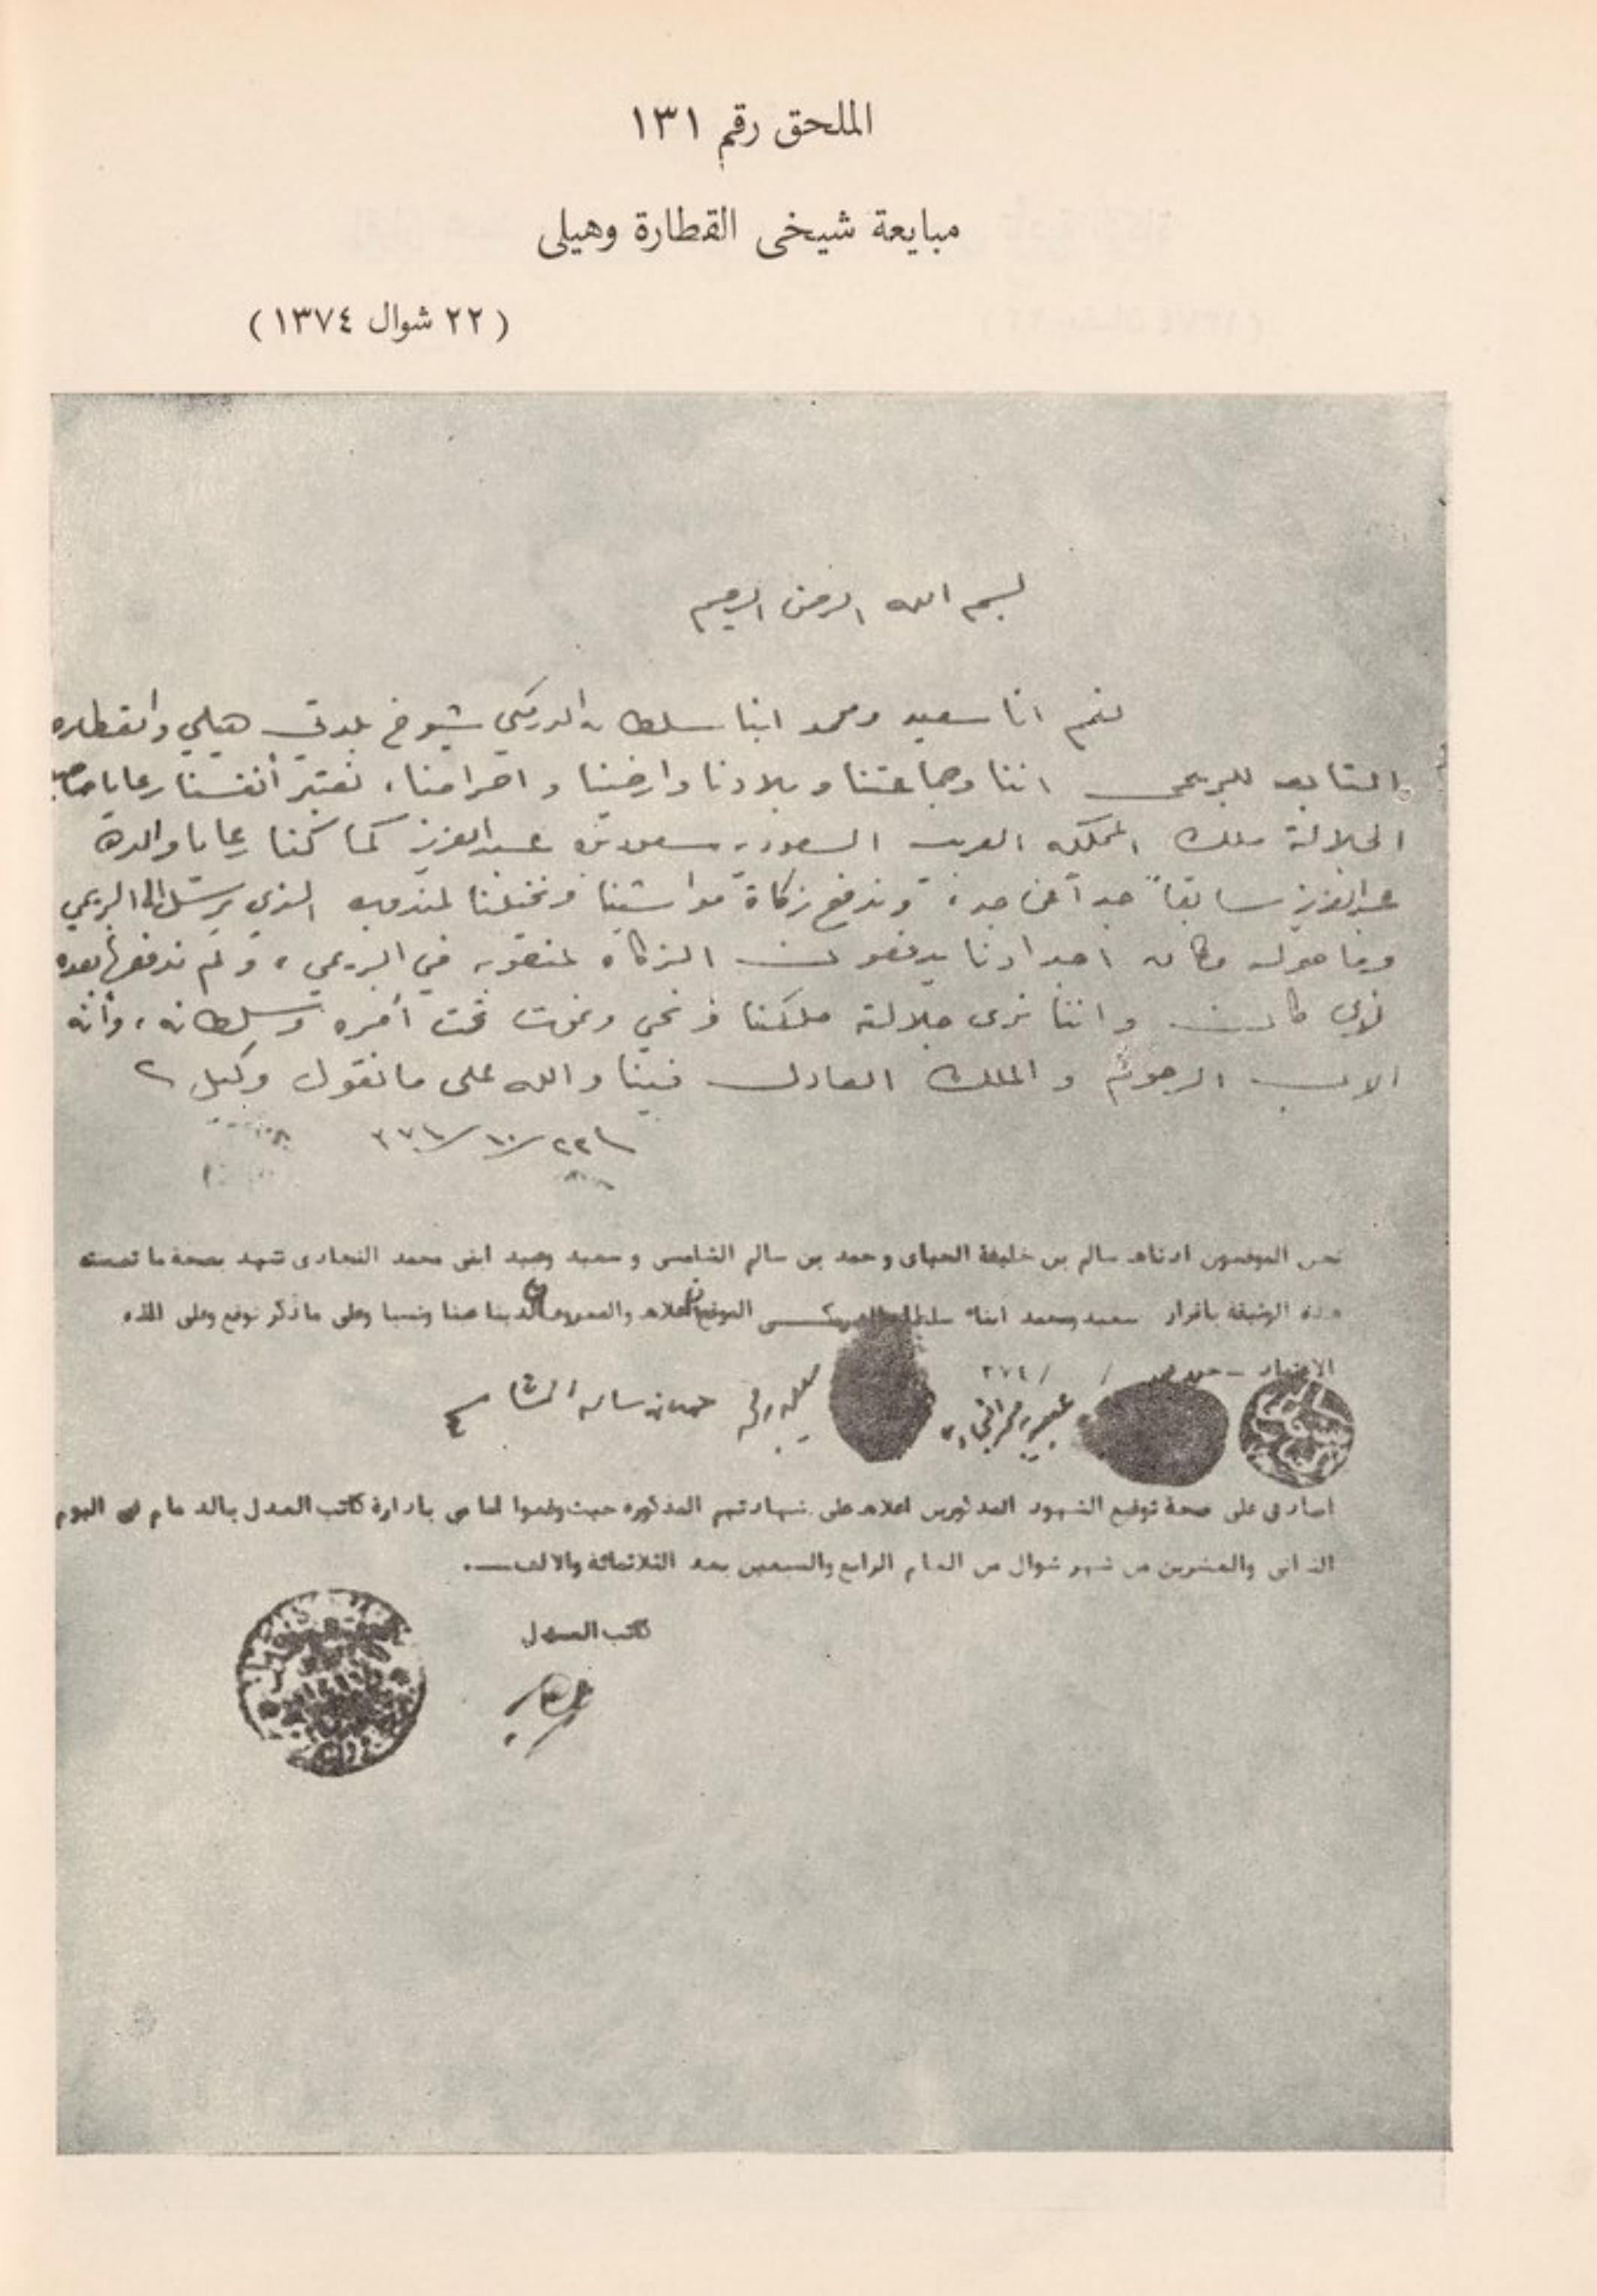 الملحق رقم ١٣١
مبايعة شيخى القطارة وهيلى
( ٢٢ شوال ١٣٧٤ )
بسم الله الرحمن الرحيم
نعم انا سعيد ومحمد ابنا سلطان الدرمكي شيوخ بلدتي هيلي والقطاره
التابعه للبريمي اننا وجماعتنا وبلادنا وارضينا و نعتبر أنفسنا رعايا صاحب
الجلالة ملك المملكه العربيه السعوديه سعود بن عبدالعزيز كما كنا رعايا والده
عبدالعزيز سابقاً جداً عن جد، وندفع زكاة مواشينا ونخيلنا لمندوبه الذي يرسل الى البريمي
وما حوله وكان اجدادنا يدفعون الزكاه في البريمي، ولم ندفعها بعده
لأي كان واننا نرى جلالة ملكنا ونحي ونموت تحت أمره وسلطانه، وأنه
الاب الرحوم والملك العادل فينا والله على ما نقول وكيل
٢٢/١٠/
نحن الموقعون ادناه سالم بن خليفة وحمد بن سالم الشامسى و سعيد وعبيد ابنى محمد نشهد بصحة ما تضمنته
هذه الوثيقة باقرار سعيد ومحمد ابناء سلطان الموقعان اعلاه والمعروفان لدينا عينا ونسبا وعلى ما ذكر نوقع وعلى الله
الاعتماد
٣٧٤/ /
حمد بن سالم الشامسي
اصادق على صحة توقيع الشهود المذكورين اعلاه على شهادتهم المذكوره حيث وقعوا امامى بادارة كاتب العدل بالدمام فى اليوم
الثانى والعشرين من شهر شوال من العام الرابع والسبعين بعد الثلاثمائة والالف.
كاتب العدل